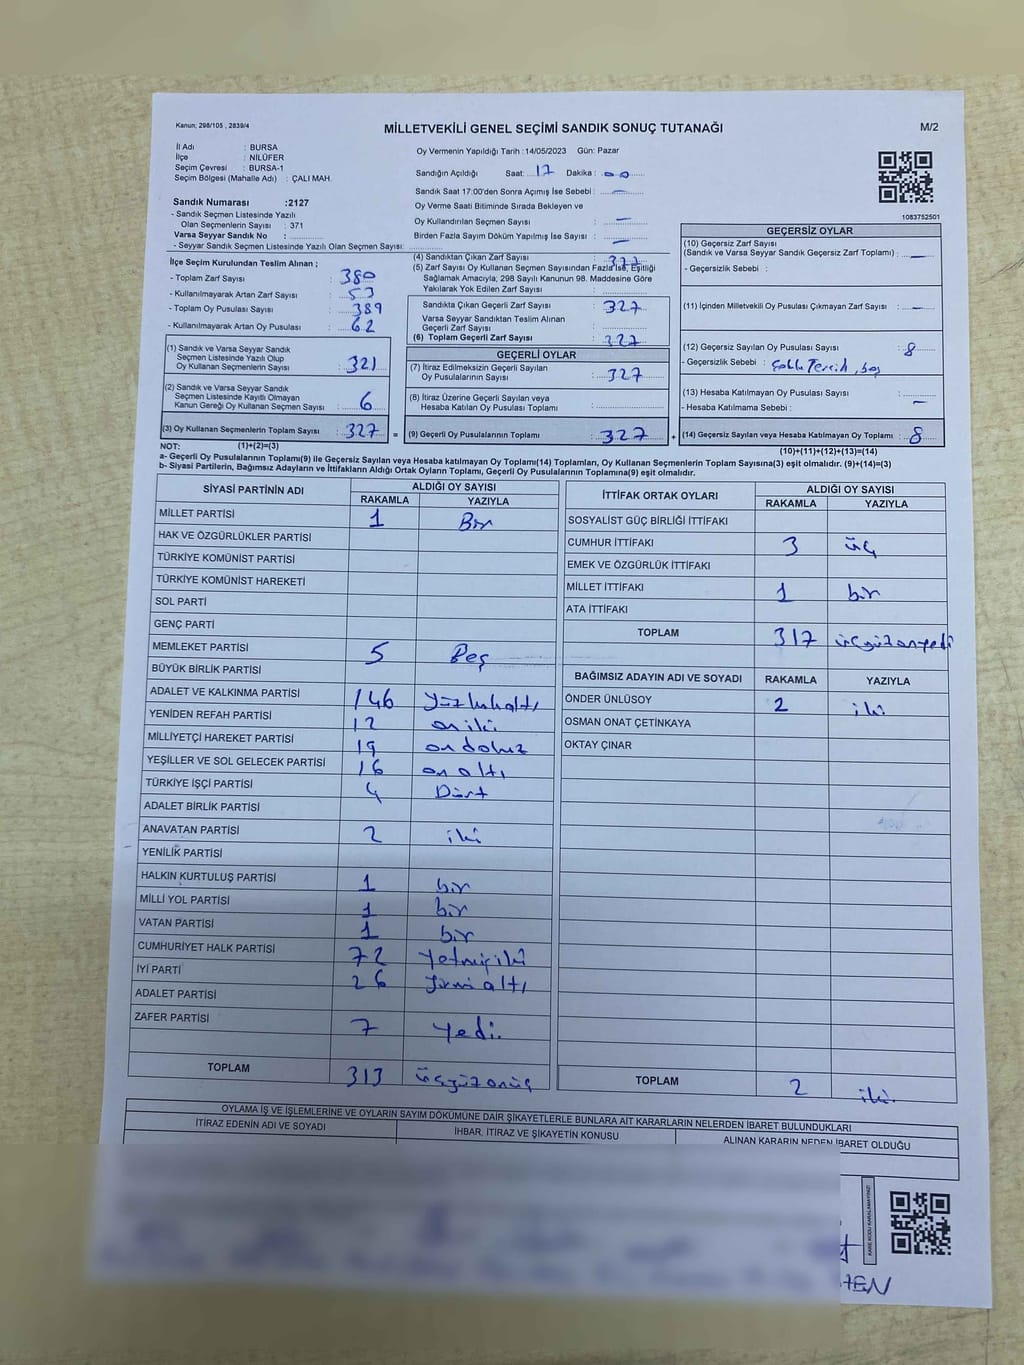 Kanun; 298/105 , 2839/4
MİLLETVEKİLİ GENEL SEÇİMİ SANDIK SONUÇ TUTANAĞI
M/2
İl Adı : BURSA
İlçe : NİLÜFER
Seçim Çevresi : BURSA-1
Seçim Bölgesi (Mahalle Adı) : ÇALI MAH.
Sandık Numarası :2127
- Sandık Seçmen Listesinde Yazılı
Olan Seçmenlerin Sayısı : 371
Varsa Seyyar Sandık No :
- Seyyar Sandık Seçmen Listesinde Yazılı Olan Seçmen Sayısı:
Oy Vermenin Yapıldığı Tarih :14/05/2023 Gün: Pazar
Sandığın Açıldığı Saat: 17 Dakika : 00
Sandık Saat 17:00'den Sonra Açımış İse Sebebi : —
Oy Verme Saati Bitiminde Sırada Bekleyen ve
Oy Kullandırılan Seçmen Sayısı : —
Birden Fazla Sayım Döküm Yapılmış İse Sayısı : —
1083752501
İlçe Seçim Kurulundan Teslim Alınan ;
- Toplam Zarf Sayısı : 380
- Kullanılmayarak Artan Zarf Sayısı : 53
- Toplam Oy Pusulası Sayısı : 389
- Kullanılmayarak Artan Oy Pusulası : 62
(1) Sandık ve Varsa Seyyar Sandık
Seçmen Listesinde Yazılı Olup
Oy Kullanan Seçmenlerin Sayısı : 321
(2) Sandık ve Varsa Seyyar Sandık
Seçmen Listesinde Kayıtlı Olmayan
Kanun Gereği Oy Kullanan Seçmen Sayısı : 6
(3) Oy Kullanan Seçmenlerin Toplam Sayısı : 327
(4) Sandıktan Çıkan Zarf Sayısı : 327
(5) Zarf Sayısı Oy Kullanan Seçmen Sayısından Fazla İse, Eşitliği
Sağlamak Amacıyla; 298 Sayılı Kanunun 98. Maddesine Göre
Yakılarak Yok Edilen Zarf Sayısı :
Sandıkta Çıkan Geçerli Zarf Sayısı : 327
Varsa Seyyar Sandıktan Teslim Alınan
Geçerli Zarf Sayısı :
(6) Toplam Geçerli Zarf Sayısı : 327
GEÇERLİ OYLAR
(7) İtiraz Edilmeksizin Geçerli Sayılan
Oy Pusulalarının Sayısı : 327
(8) İtiraz Üzerine Geçerli Sayılan veya
Hesaba Katılan Oy Pusulası Toplamı :
= (9) Geçerli Oy Pusulalarının Toplamı : 327
GEÇERSİZ OYLAR
(10) Geçersiz Zarf Sayısı
(Sandık ve Varsa Seyyar Sandık Geçersiz Zarf Toplamı) : —
- Geçersizlik Sebebi :
(11) İçinden Milletvekili Oy Pusulası Çıkmayan Zarf Sayısı : —
(12) Geçersiz Sayılan Oy Pusulası Sayısı : 8
- Geçersizlik Sebebi : Çoklu Tercih, boş
(13) Hesaba Katılmayan Oy Pusulası Sayısı : —
- Hesaba Katılmama Sebebi :
+ (14) Geçersiz Sayılan veya Hesaba Katılmayan Oy Toplamı : 8
NOT: (1)+(2)=(3)
(10)+(11)+(12)+(13)=(14)
a- Geçerli Oy Pusulalarının Toplamı(9) ile Geçersiz Sayılan veya Hesaba katılmayan Oy Toplamı(14) Toplamları, Oy Kullanan Seçmenlerin Toplam Sayısına(3) eşit olmalıdır. (9)+(14)=(3)
b- Siyasi Partilerin, Bağımsız Adayların ve İttifakların Aldığı Ortak Oyların Toplamı, Geçerli Oy Pusulalarının Toplamına(9) eşit olmalıdır.
SİYASİ PARTİNİN ADI ALDIĞI OY SAYISI
RAKAMLA YAZIYLA
MİLLET PARTİSİ 1 Bir
HAK VE ÖZGÜRLÜKLER PARTİSİ
TÜRKİYE KOMÜNİST PARTİSİ
TÜRKİYE KOMÜNİST HAREKETİ
SOL PARTİ
GENÇ PARTİ
MEMLEKET PARTİSİ 5 Beş
BÜYÜK BİRLİK PARTİSİ
ADALET VE KALKINMA PARTİSİ 146 yüzkırkaltı
YENİDEN REFAH PARTİSİ 12 oniki
MİLLİYETÇİ HAREKET PARTİSİ 19 ondokuz
YEŞİLLER VE SOL GELECEK PARTİSİ 16 onaltı
TÜRKİYE İŞÇİ PARTİSİ 4 Dört
ADALET BİRLİK PARTİSİ
ANAVATAN PARTİSİ 2 iki
YENİLİK PARTİSİ
HALKIN KURTULUŞ PARTİSİ 1 bir
MİLLİ YOL PARTİSİ 1 bir
VATAN PARTİSİ 1 bir
CUMHURİYET HALK PARTİSİ 72 yetmişiki
İYİ PARTİ 26 yirmi altı
ADALET PARTİSİ
ZAFER PARTİSİ 7 yedi.
TOPLAM 313 üçyüzonüç
İTTİFAK ORTAK OYLARI ALDIĞI OY SAYISI
RAKAMLA YAZIYLA
SOSYALİST GÜÇ BİRLİĞİ İTTİFAKI
CUMHUR İTTİFAKI 3 üç
EMEK VE ÖZGÜRLÜK İTTİFAKI
MİLLET İTTİFAKI 1 bir
ATA İTTİFAKI
TOPLAM 317 üçyüzonyedi
BAĞIMSIZ ADAYIN ADI VE SOYADI RAKAMLA YAZIYLA
ÖNDER ÜNLÜSOY 2 iki
OSMAN ONAT ÇETİNKAYA
OKTAY ÇINAR
TOPLAM 2 iki.
OYLAMA İŞ VE İŞLEMLERİNE VE OYLARIN SAYIM DÖKÜMÜNE DAİR ŞİKAYETLERLE BUNLARA AİT KARARLARIN NELERDEN İBARET BULUNDUKLARI
İTİRAZ EDENİN ADI VE SOYADI İHBAR, İTİRAZ VE ŞİKAYETİN KONUSU ALINAN KARARIN NEDEN İBARET OLDUĞU
KARE KODU KARALAMAYINIZ!